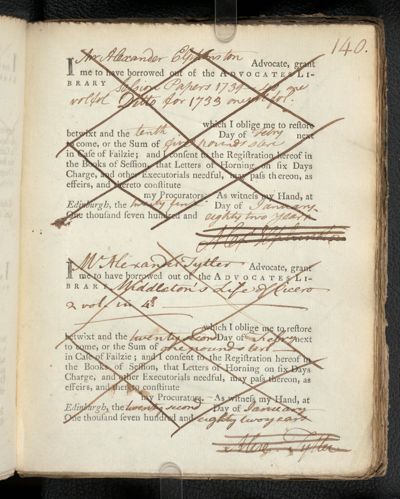 140.
I Mr Alexander Elphinston Advocate, grant
me to have borrowed out of the ADVOCATES LI-
BRARY Session Papers 1734 one
vol fol. Ditto for 1733 one vol fol.
which I oblige me to restore
betwixt and the tenth Day of febry next
to come, or the Sum of five pounds ster
in Case of Failzie; and I consent to the Registration hereof in
the Books of Session, that Letters of Horning on six Days
Charge, and other Executorials needful, may pass thereon, as
effeirs, and thereto constitute
my Procurators. As witness my Hand, at
Edinburgh, the twenty first Day of January
One thousand seven hundred and eighty two years
I Mr Alexander Tytler Advocate, grant
me to have borrowed out of the ADVOCATES LI-
BRARY Middleton's Life of Cicero
2 vols in 4to
which I oblige me to restore
betwixt and the twenty second Day of febry next
to come, or the Sum of one pound ster
in Case of Failzie; and I consent to the Registration hereof in
the Books of Session, that Letters of Horning on six Days
Charge, and other Executorials needful, may pass thereon, as
effeirs, and thereto constitute
my Procurators. As witness my Hand, at
Edinburgh, the twenty second Day of January
One thousand seven hundred and eighty two years
Alexr Tytler